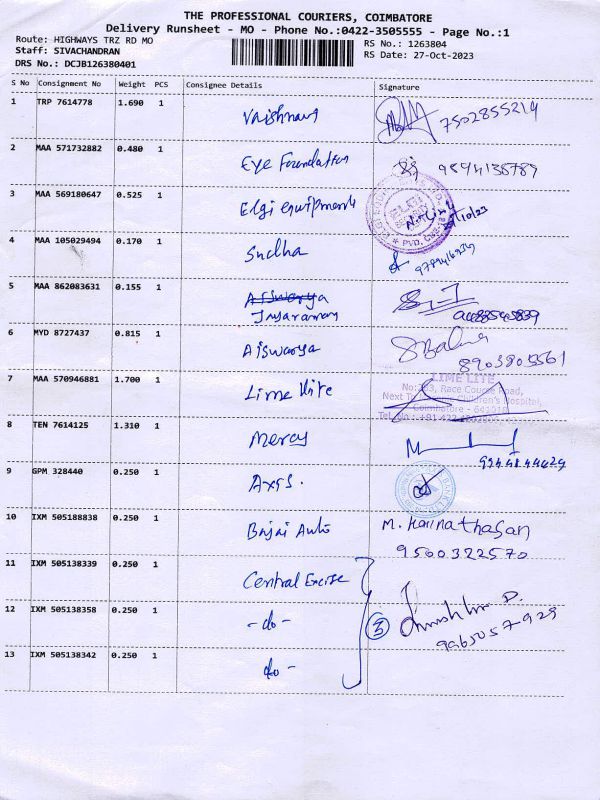 THE PROFESSIONAL COURIERS, COIMBATORE
Delivery Runsheet - MO - Phone No.:0422-3505555 - Page No.:1
Route: HIGHWAYS TRZ RD MO
Staff: SIVACHANDRAN
DRS No.: DCJB126380401
RS No.: 1263804
RS Date: 27-Oct-2023
S No Consignment No Weight PCS Consignee Details Signature
1 TRP 7614778 1.690 1 Vaishnavi 7502855214
2 MAA 571732882 0.480 1 Eye Foundation 9894138789
3 MAA 569180647 0.525 1 Elgi equipments
4 MAA 105029494 0.170 1 Sudha
5 MAA 862083631 0.155 1 Aiswarya
Jayaraman
6 MYD 8727437 0.815 1 Aiswarya S Balu
8903805561
7 MAA 570946881 1.700 1 Lime lite LIME LITE
Race Course Road,
Next To Children's Hospital,
Coimbatore - 641018
8 TEN 7614125 1.310 1 Mercy
9 GPM 328440 0.250 1 Axis.
10 IXM 505188838 0.250 1 Bajai Auto M. Harinathasan
9500322570
11 IXM 505138339 0.250 1 Central Excise
12 IXM 505138358 0.250 1 -do- 3
9965057929
13 IXM 505138342 0.250 1 do -